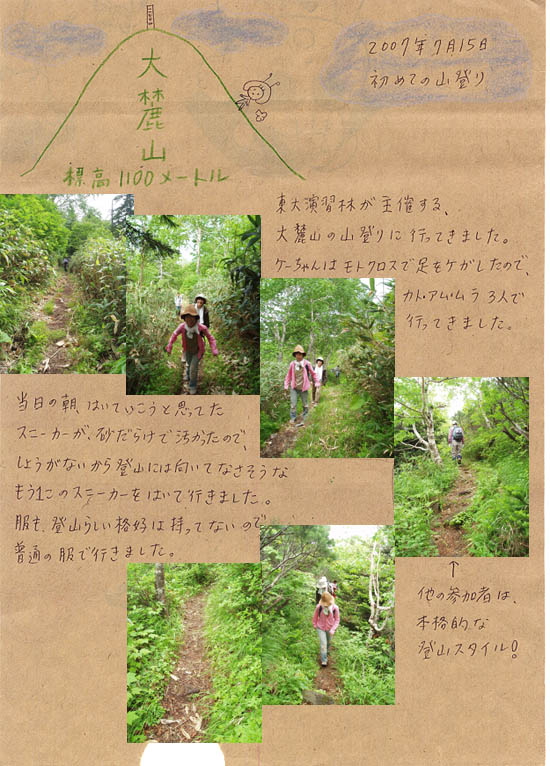 大麓山
標高1100メートル
2007年7月15日
初めての山登り
東大演習林が主催する、
大麓山の山登りに行ってきました。
ケーちゃんはモトクロスで足をケガしたので、
カト・アム・ムラ 3人で
行ってきました。
当日の朝、はいていこうと思ってた
スニーカーが、砂だらけで汚かったので、
しょうがないから登山には向いてなさそうな
もう1このスニーカーをはいて行きました。
服も、登山らしい格好は持ってないので
普通の服で行きました。
他の参加者は、
本格的な
登山スタイル!